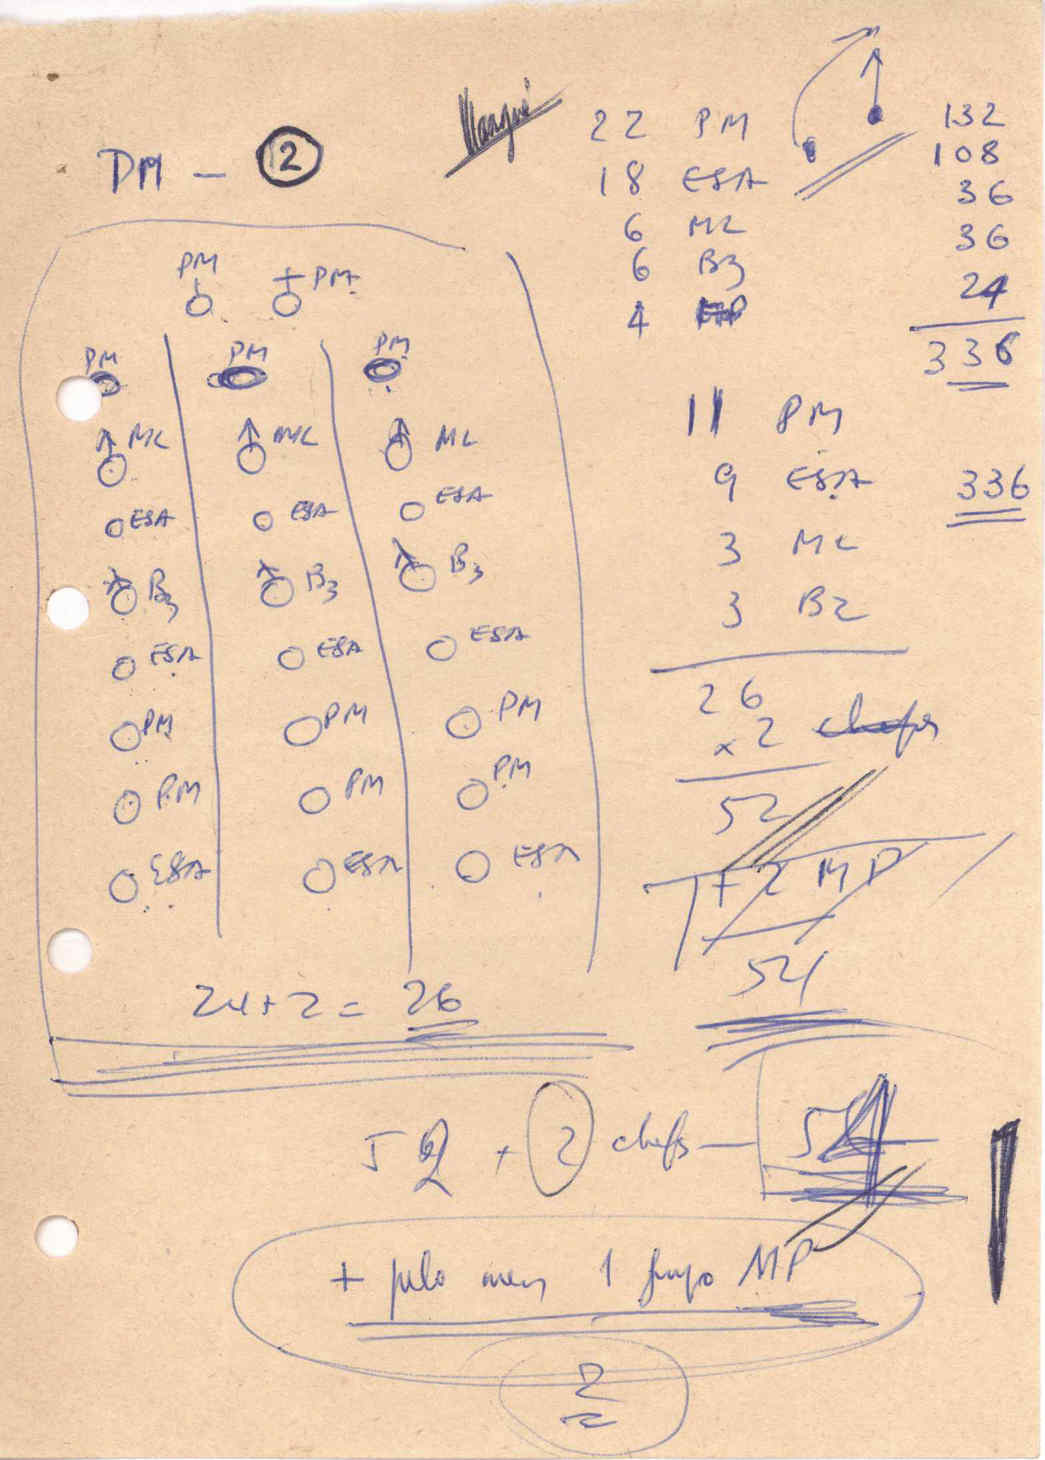 DM - 2
PM + PM
PM PM PM
ML ML ML
ESA ESA ESA
B3 B3 B3
ESA ESA ESA
PM PM PM
PM PM PM
ESA ESA ESA
24 + 2 = 26
22 PM 132
18 ESA 108
6 ML 36
6 B3 36
4 24
336
11 PM
9 ESA 336
3 ML
3 B2
26
x 2 chefes
52
+ 2 MP
54
52 + 2 chefs — 54
+ pelo men 1 grupo MP
2